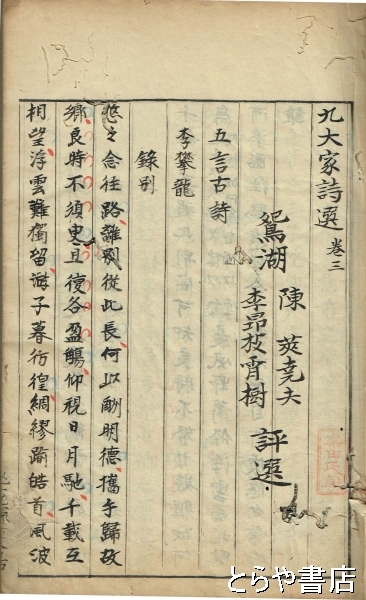 九大家詩選 卷三
鴛湖 陳 莢堯夫
李昂枝霄樹 評選
五言古詩
李攀龍
錄別
悠々念往路離別從此長何以酬明德攜手歸故
鄉良時不須臾且復各盈觴仰視日月馳千載互
相望浮雲難獨留游子暮彷徨綢繆踰皓首風波
とらや書店